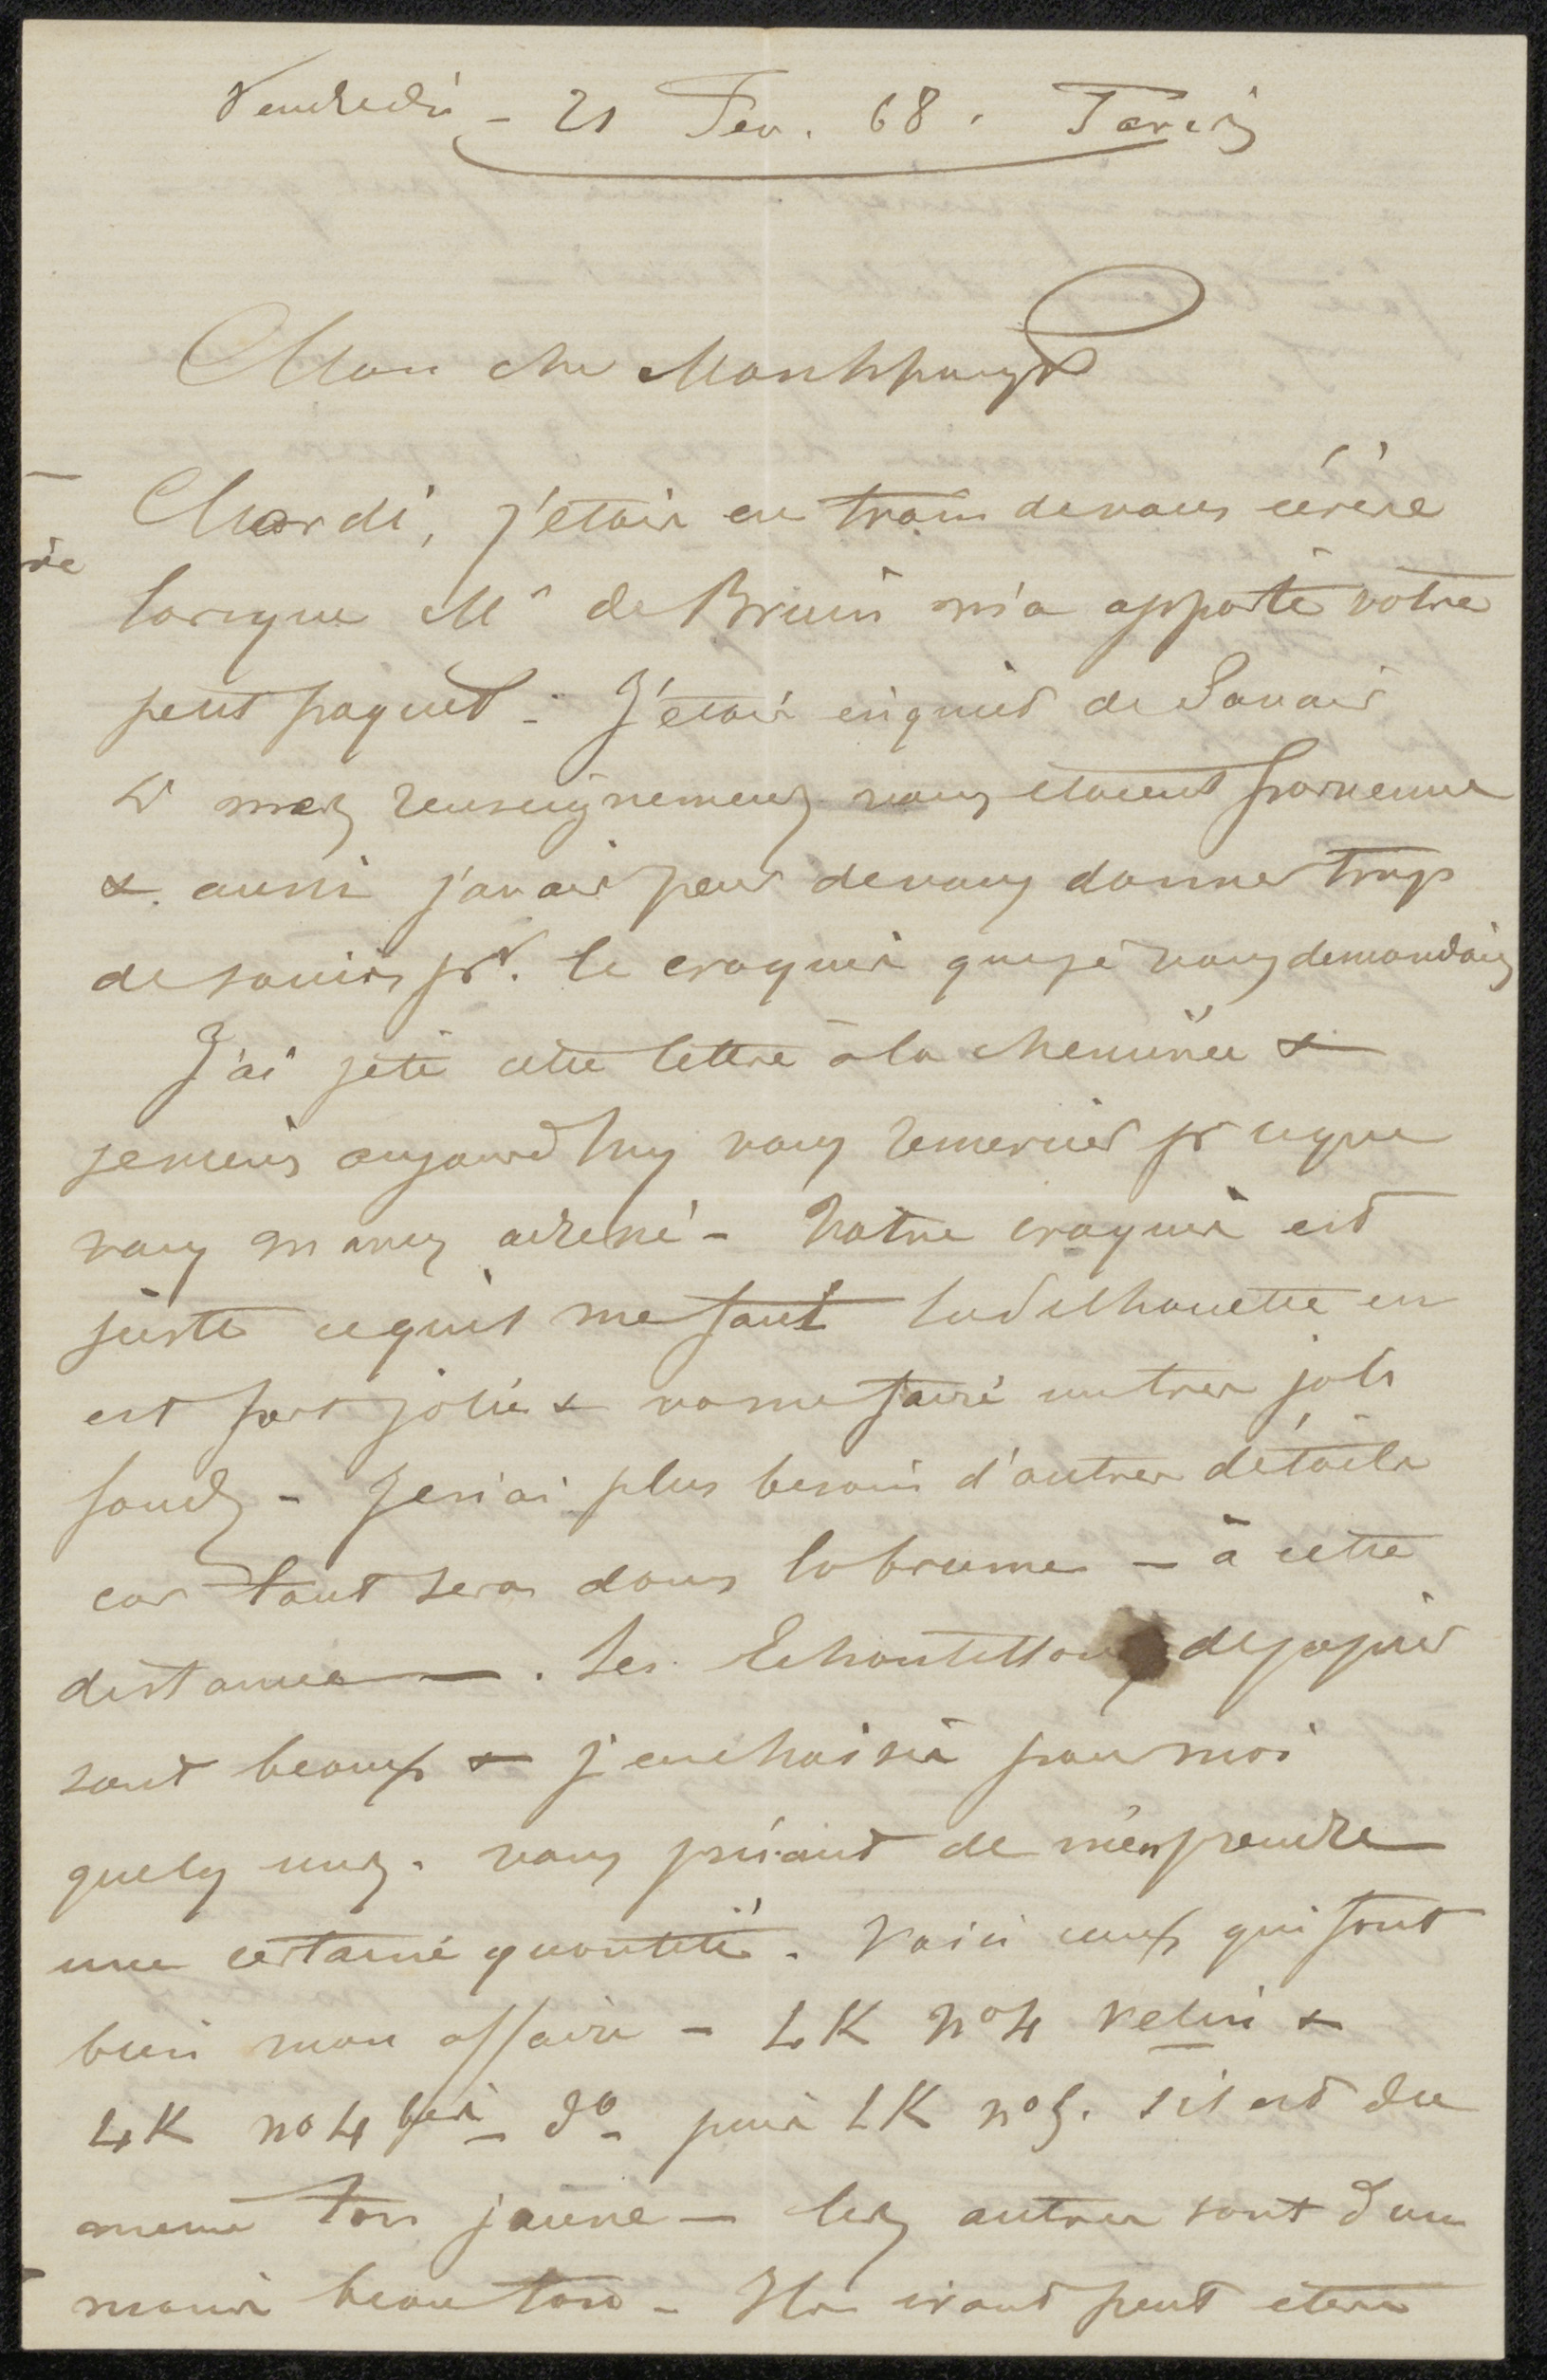 Vendredi - 21 Fev. 68. Paris
Mon cher Monshpuryt
Mardi, j'étais en train de vous écrire
lorsque Mr de Bruin m'a apporté votre
petit paquet - J'étais inquiet de Savoir
si mes renseignements vous étaient parvenus
& aussi j'avais peur de vous donner trop
de soucis pr. le croquis que je vous demandais
J'ai jeté cette lettre à la cheminée &
je viens aujourd'huy vous remercier pr ce que
vous m'avez adressé - Votre croquis est
juste ce qu'il me faut la Silhouette en
est fort jolie & va me faire un tres joli
fond - Je n'ai plus besoin d'autres détails
car tout sera dans la brume - à cette
distance - . Les Echantillons de papier
sont beaux & j'en choisis pour moi
quelqs uns. vous priant de m'en prendre
une certaine quantité. Voici ceux qui font
bien mon affaire - LK no 4 Velin &
LK no 4 bis - do - puis LK no 5. s'il est du
meme ton jaune - les autres sont d'un
moins beau ton - Ils iront peut etre